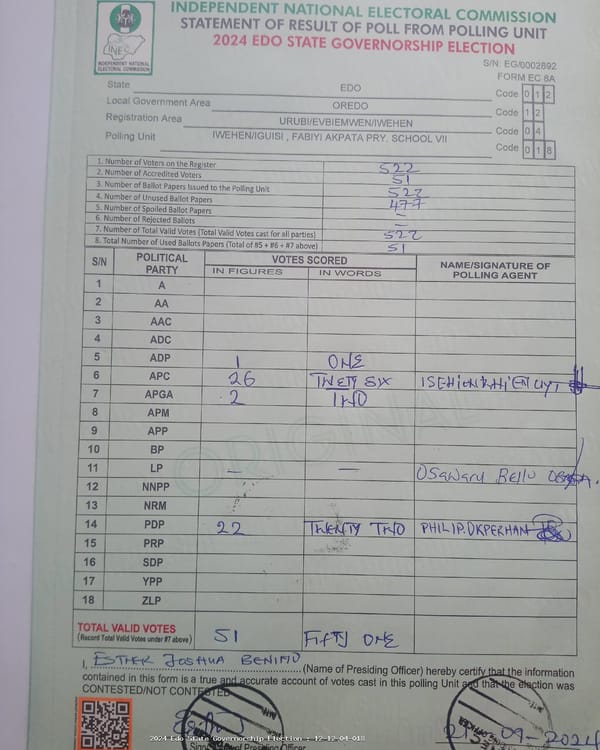 INDEPENDENT NATIONAL ELECTORAL COMMISSION
STATEMENT OF RESULT OF POLL FROM POLLING UNIT
2024 EDO STATE GOVERNORSHIP ELECTION
INEC
INDEPENDENT NATIONAL
ELECTORAL COMMISSION
S/N: EG/0002892
FORM EC 8A
State EDO Code 0 1 2
Local Government Area OREDO Code 1 2
Registration Area URUBI/EVBIEMWEN/IWEHEN Code 0 4
Polling Unit IWEHEN/IGUISI , FABIYI AKPATA PRY. SCHOOL VII Code 0 1 8
1. Number of Voters on the Register 522
2. Number of Accredited Voters 51
3. Number of Ballot Papers Issued to the Polling Unit 522
4. Number of Unused Ballot Papers 477
5. Number of Spoiled Ballot Papers –
6. Number of Rejected Ballots –
7. Number of Total Valid Votes (Total Valid Votes cast for all parties) 522
8. Total Number of Used Ballots Papers (Total of #5 + #6 + #7 above) 51
S/N POLITICAL PARTY VOTES SCORED NAME/SIGNATURE OF POLLING AGENT
IN FIGURES IN WORDS
1 A
2 AA
3 AAC
4 ADC
5 ADP 1 ONE
6 APC 26 TWETY SIX
7 APGA 2 TWO
8 APM
9 APP
10 BP
11 LP – – OSAWARU BELLO
12 NNPP
13 NRM
14 PDP 22 TWENTY TWO PHILIP.OKPERHAN
15 PRP
16 SDP
17 YPP
18 ZLP
ORIGINAL
TOTAL VALID VOTES 51 FIFTY ONE
(Record Total Valid Votes under #7 above)
I, ESTHER JOSHUA (Name of Presiding Officer) hereby certify that the information
contained in this form is a true and accurate account of votes cast in this polling Unit and that the election was
CONTESTED/NOT CONTESTED
2024 Edo State Governorship Election : 12-12-04-018